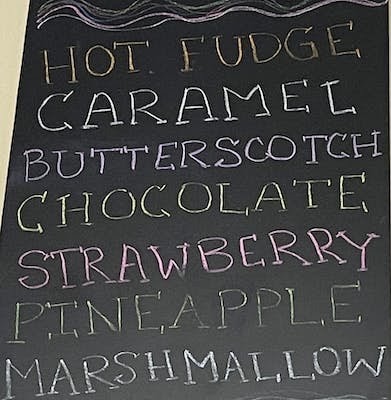 HOT FUDGE
CARAMEL
BUTTERSCOTCH
CHOCOLATE
STRAWBERRY
PINEAPPLE
MARSHMALLOW